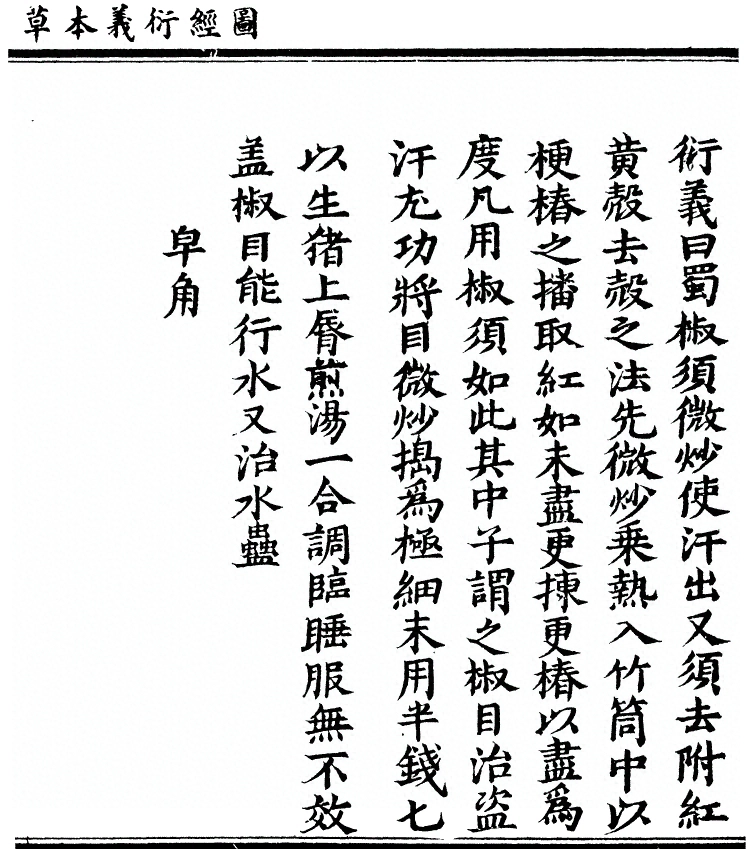 圖經衍義本草
衍義曰蜀椒須微炒使汗出又須去附紅
黄殼去殼之法先微炒乗熱入竹筒中以
梗椿之播取紅如未盡更揀更椿以盡爲
度凡用椒須如此其中子謂之椒目治盗
汗尤功將目微炒搗爲極細末用半錢七
以生猪上脣煎湯一合調臨睡服無不效
盖椒目能行水又治水蠱
皁角